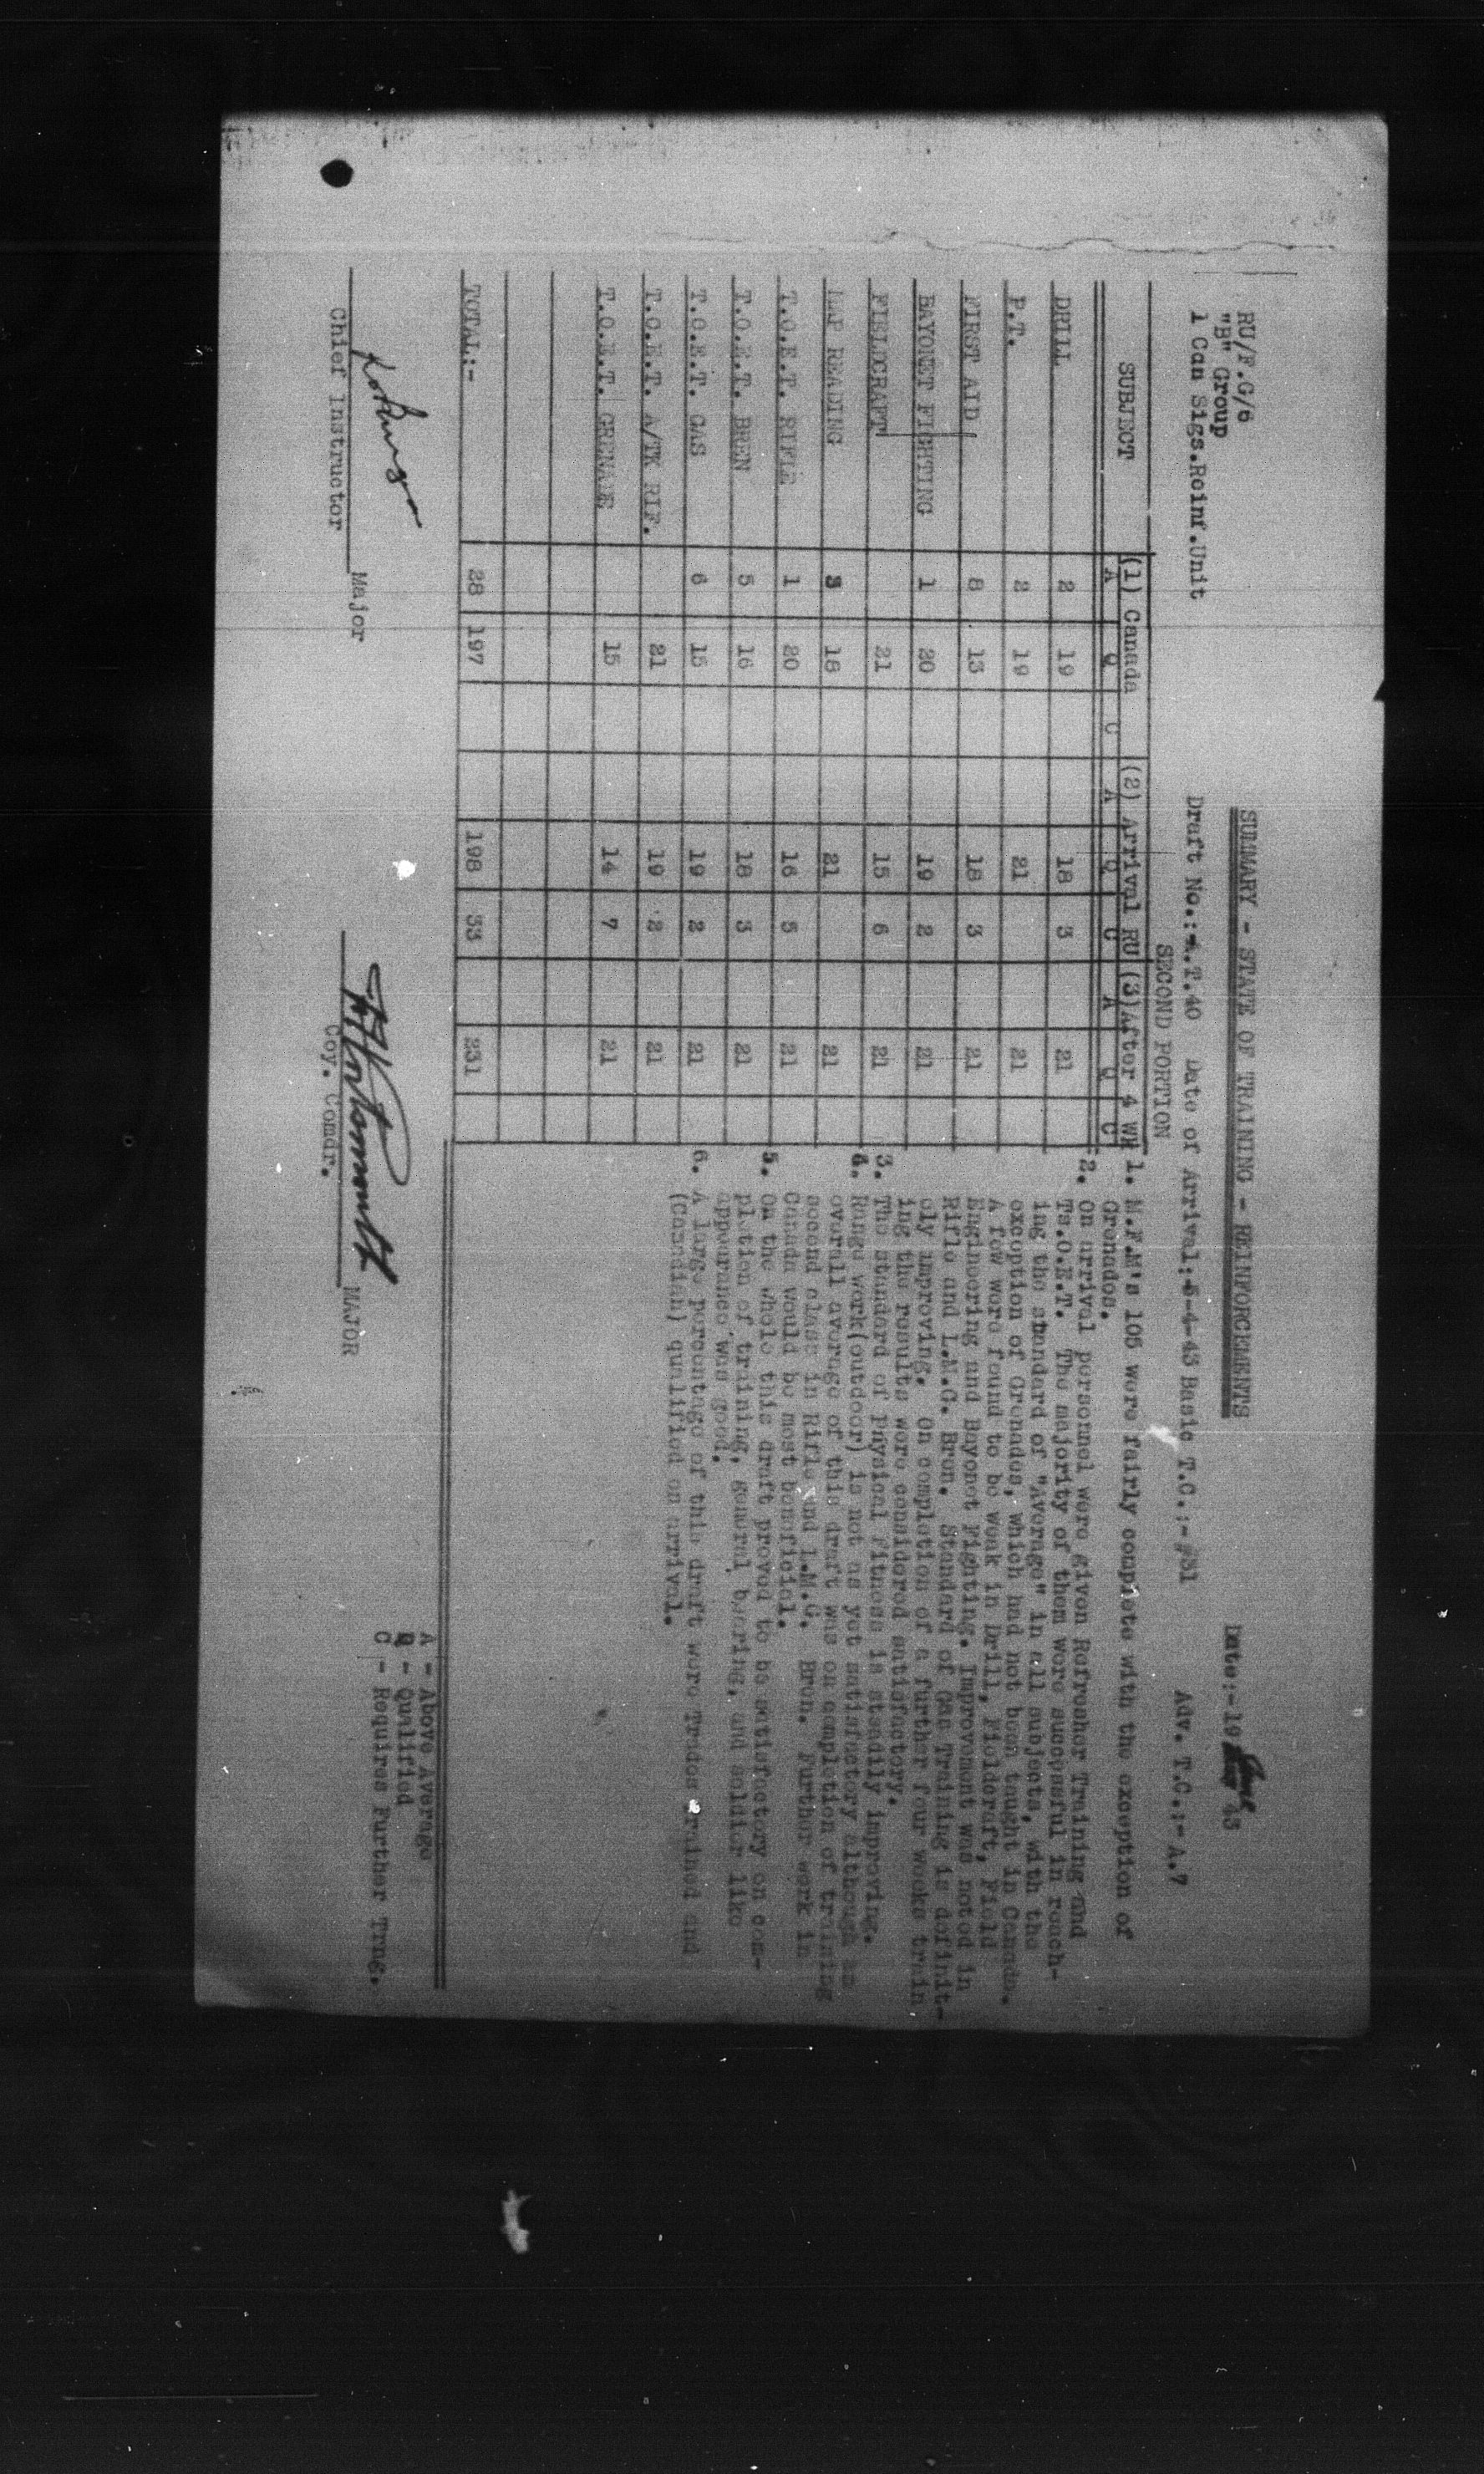 RU/F.G/6
"B" Group
1 Can Sigs.Reinf.Unit
SUMMARY - STATE OF TRAINING - REINFORCEMENTS
Date:-19 June 43
Draft No.:-A.T.40 Date of Arrival:-5-4-43 Basic T.C.:-#31 Adv. T.C.:- A.7
SECOND PORTION
SUBJECT (1) Canada (2) Arrival RU (3)After 4 Wk
A Q C A Q C A Q C
DRILL 2 19 18 3 21
P.T. 2 19 21 21
FIRST AID 8 13 18 3 21
BAYONET FIGHTING 1 20 19 2 21
FIELDCRAFT 21 15 6 21
MAP READING 3 18 21 21
T.O.E.T. RIFLE 1 20 16 5 21
T.O.E.T. BREN 5 16 18 3 21
T.O.E.T. GAS 6 15 19 2 21
T.O.E.T. A/TK RIF. 21 19 2 21
T.O.E.T. GRENADE 15 14 7 21
TOTAL:- 28 197 198 33 231
1. M.F.M's 105 were fairly complete with the exception of
Grenades.
2. On arrival personnel were given Refresher Training and
Ts.O.E.T. The majority of them were successful in reach-
ing the standard of "Average" in all subjects, with the
exception of Grenades, which had not been taught in Canada.
A few were found to be weak in Drill, Fieldcraft, Field
Engineering and Bayonet Fighting. Improvement was noted in
Rifle and L.M.G. Bren. Standard of Gas Training is definit-
ely improving. On completion of a further four weeks train
ing the results were considered satisfactory.
3. The standard of Physical Fitness is steadily improving.
4. Range work(outdoor) is not as yet satisfactory although an
overall average of this draft was on completion of training
second class in Rifle and L.M.G. Bren. Further work in
Canada would be most beneficial.
5. On the whole this draft proved to be satisfactory on com-
pletion of training, general bearing, and soldier like
appearance was good.
6. A large percentage of this draft were Trades trained and
(Canadian) qualified on arrival.
A - Above Average
Q - Qualified
C - Requires Further Trng.
Major
Chief Instructor
MAJOR
Coy. Comdr.